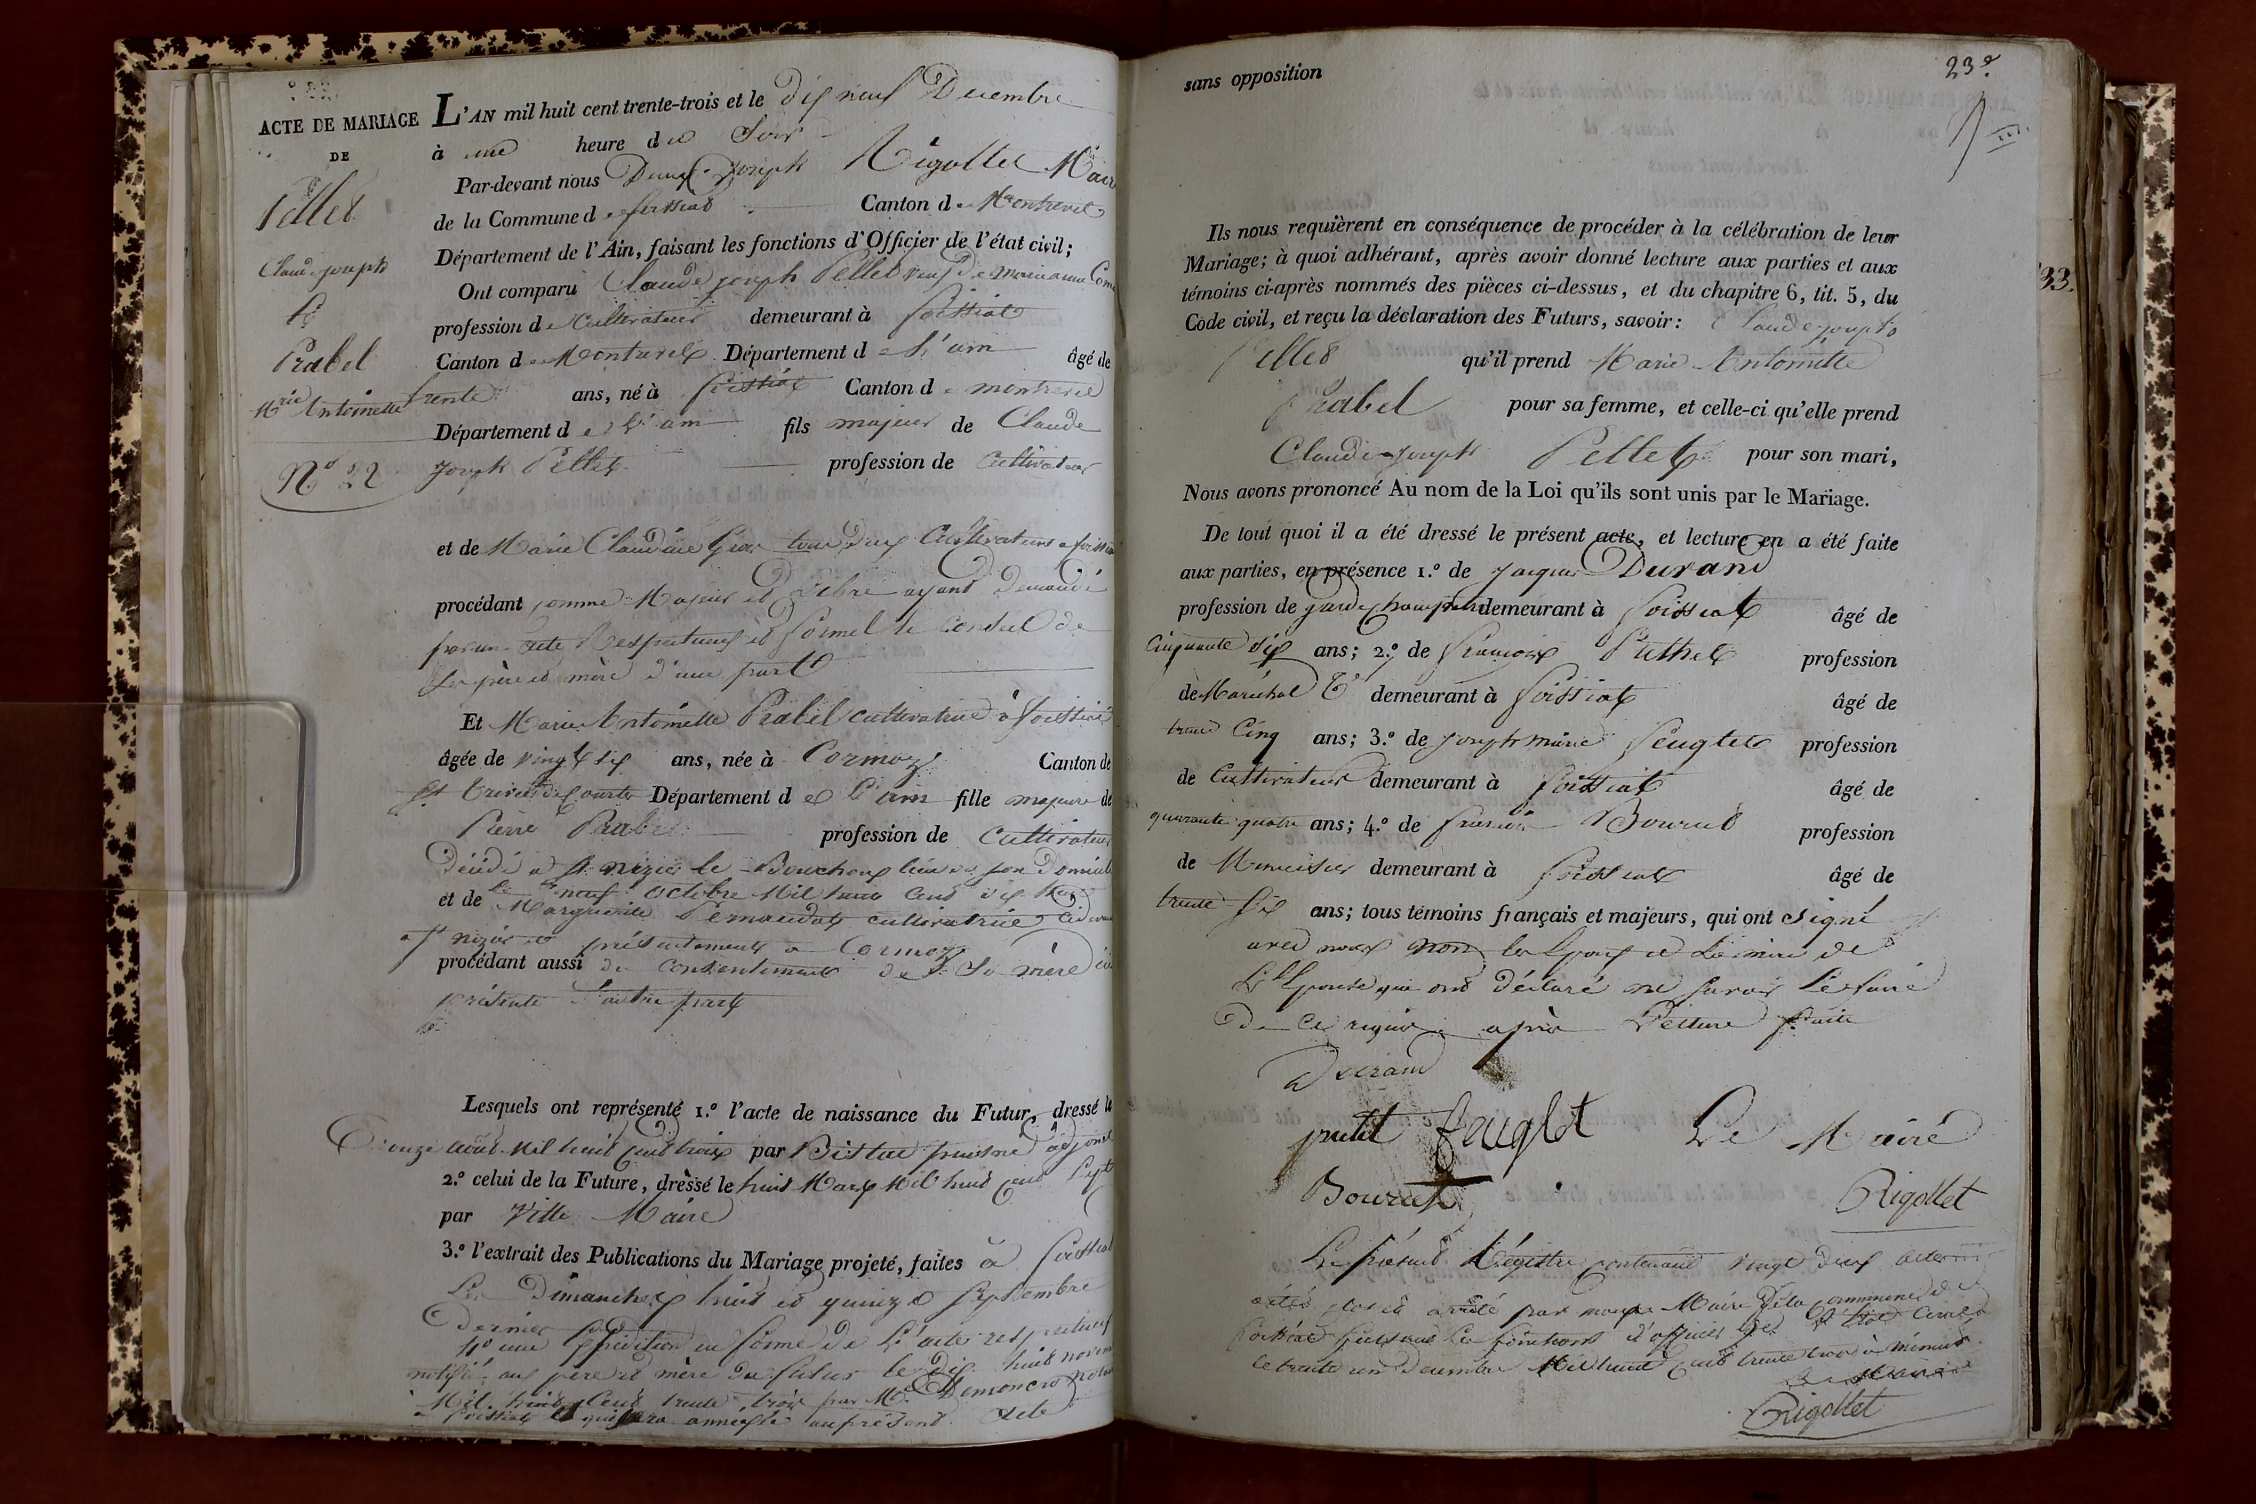 ACTE DE MARIAGE
DE
Pellet
Claude joseph
Et
Prabel
Mrie Antoinette
No 22
L'AN mil huit cent trente-trois et le dix neuf Decembre
à une heure du Soir
Par-devant nous Joseph Rigollet Maire
de la Commune de foissiat Canton de Montrevel
Département de l'Ain, faisant les fonctions d'Officier de l'état civil;
Ont comparu Claude joseph Pellet veuf de marie anne
profession de Cultivateur demeurant à foissiat
Canton de Montrevel Département de L'ain âgé de
trente ans, né à foissiat Canton de montrevel
Département de L'ain fils majeur de Claude
joseph Pellet profession de Cultivateur
et de Marie Claudine tous deux Cultivateurs a foissiat
procédant comme Majeur et Libre ayant Demandé
par un acte Respectueux et formel le conseil de
Ses père et mère d'une part
Et Marie Antoinette Prabel cultivatrice a foissiat
âgée de vingt six ans, née à Cormoz Canton de
St trivier de Courtes Département de L'ain fille majeure de
Pierre Prabel profession de Cultivateur
décédé a St nizier le Bouchoux lieu de son Domicile
le neuf octobre Mil huit Cent dix
et de Marguerite cultivatrice
a St nizier et présentement a Cormoz
procédant aussi du consentement de Sa mère ici
présente d'autre part
Lesquels ont représenté 1.º l'acte de naissance du Futur, dressé le
onze août Mil huit Cent trois par adjoint
2.º celui de la Future, dressé le huit Mars Mil huit Cent Sept
par Ville Maire
3.º l'extrait des Publications du Mariage projeté, faites a foissiat
Les Dimanches huit et quinze Septembre
Dernier
4º une Expédition en forme de L'acte respectueux
notifié aux père et mère du futur le Dix huit novembre
Mil huit Cent trente trois par Me
a foissiat et qui sera annexée au présent acte
sans opposition
23e.
Ils nous requièrent en conséquence de procéder à la célébration de leur
Mariage; à quoi adhérant, après avoir donné lecture aux parties et aux
témoins ci-après nommés des pièces ci-dessus, et du chapitre 6, tit. 5, du
Code civil, et reçu la déclaration des Futurs, savoir: Claude joseph
Pellet qu'il prend Marie Antoinette
Prabel pour sa femme, et celle-ci qu'elle prend
Claude Joseph Pellet pour son mari,
Nous avons prononcé Au nom de la Loi qu'ils sont unis par le Mariage.
De tout quoi il a été dressé le présent acte, et lecture en a été faite
aux parties, en présence 1.º de jacques Durand
profession de garde champetre demeurant à foissiat âgé de
cinquante six ans; 2.º de françois profession
de Maréchal demeurant à foissiat âgé de
trente Cinq ans; 3.º de joseph marie feuglet profession
de Cultivateur demeurant à foissiat âgé de
quarante quatre ans; 4.º de Bourut profession
de Menuisier demeurant à foissiat âgé de
trente Six ans; tous témoins français et majeurs, qui ont signé
avec nous non les Epoux et La mère de
L'Epouse qui ont déclaré ne savoir Le faire
De ce requis après Lecture faite
Durand
petit feuglet Le Maire
Bourut Rigollet
Le présent Régistre contenant vingt deux actes
a été clos et arrêté par nous Maire de la commune de
foissiat faisant les fonctions d'officier de L'état Civil
le trente un decembre Mil huit Cent trente trois à minuit
Le Maire
Rigollet
33.